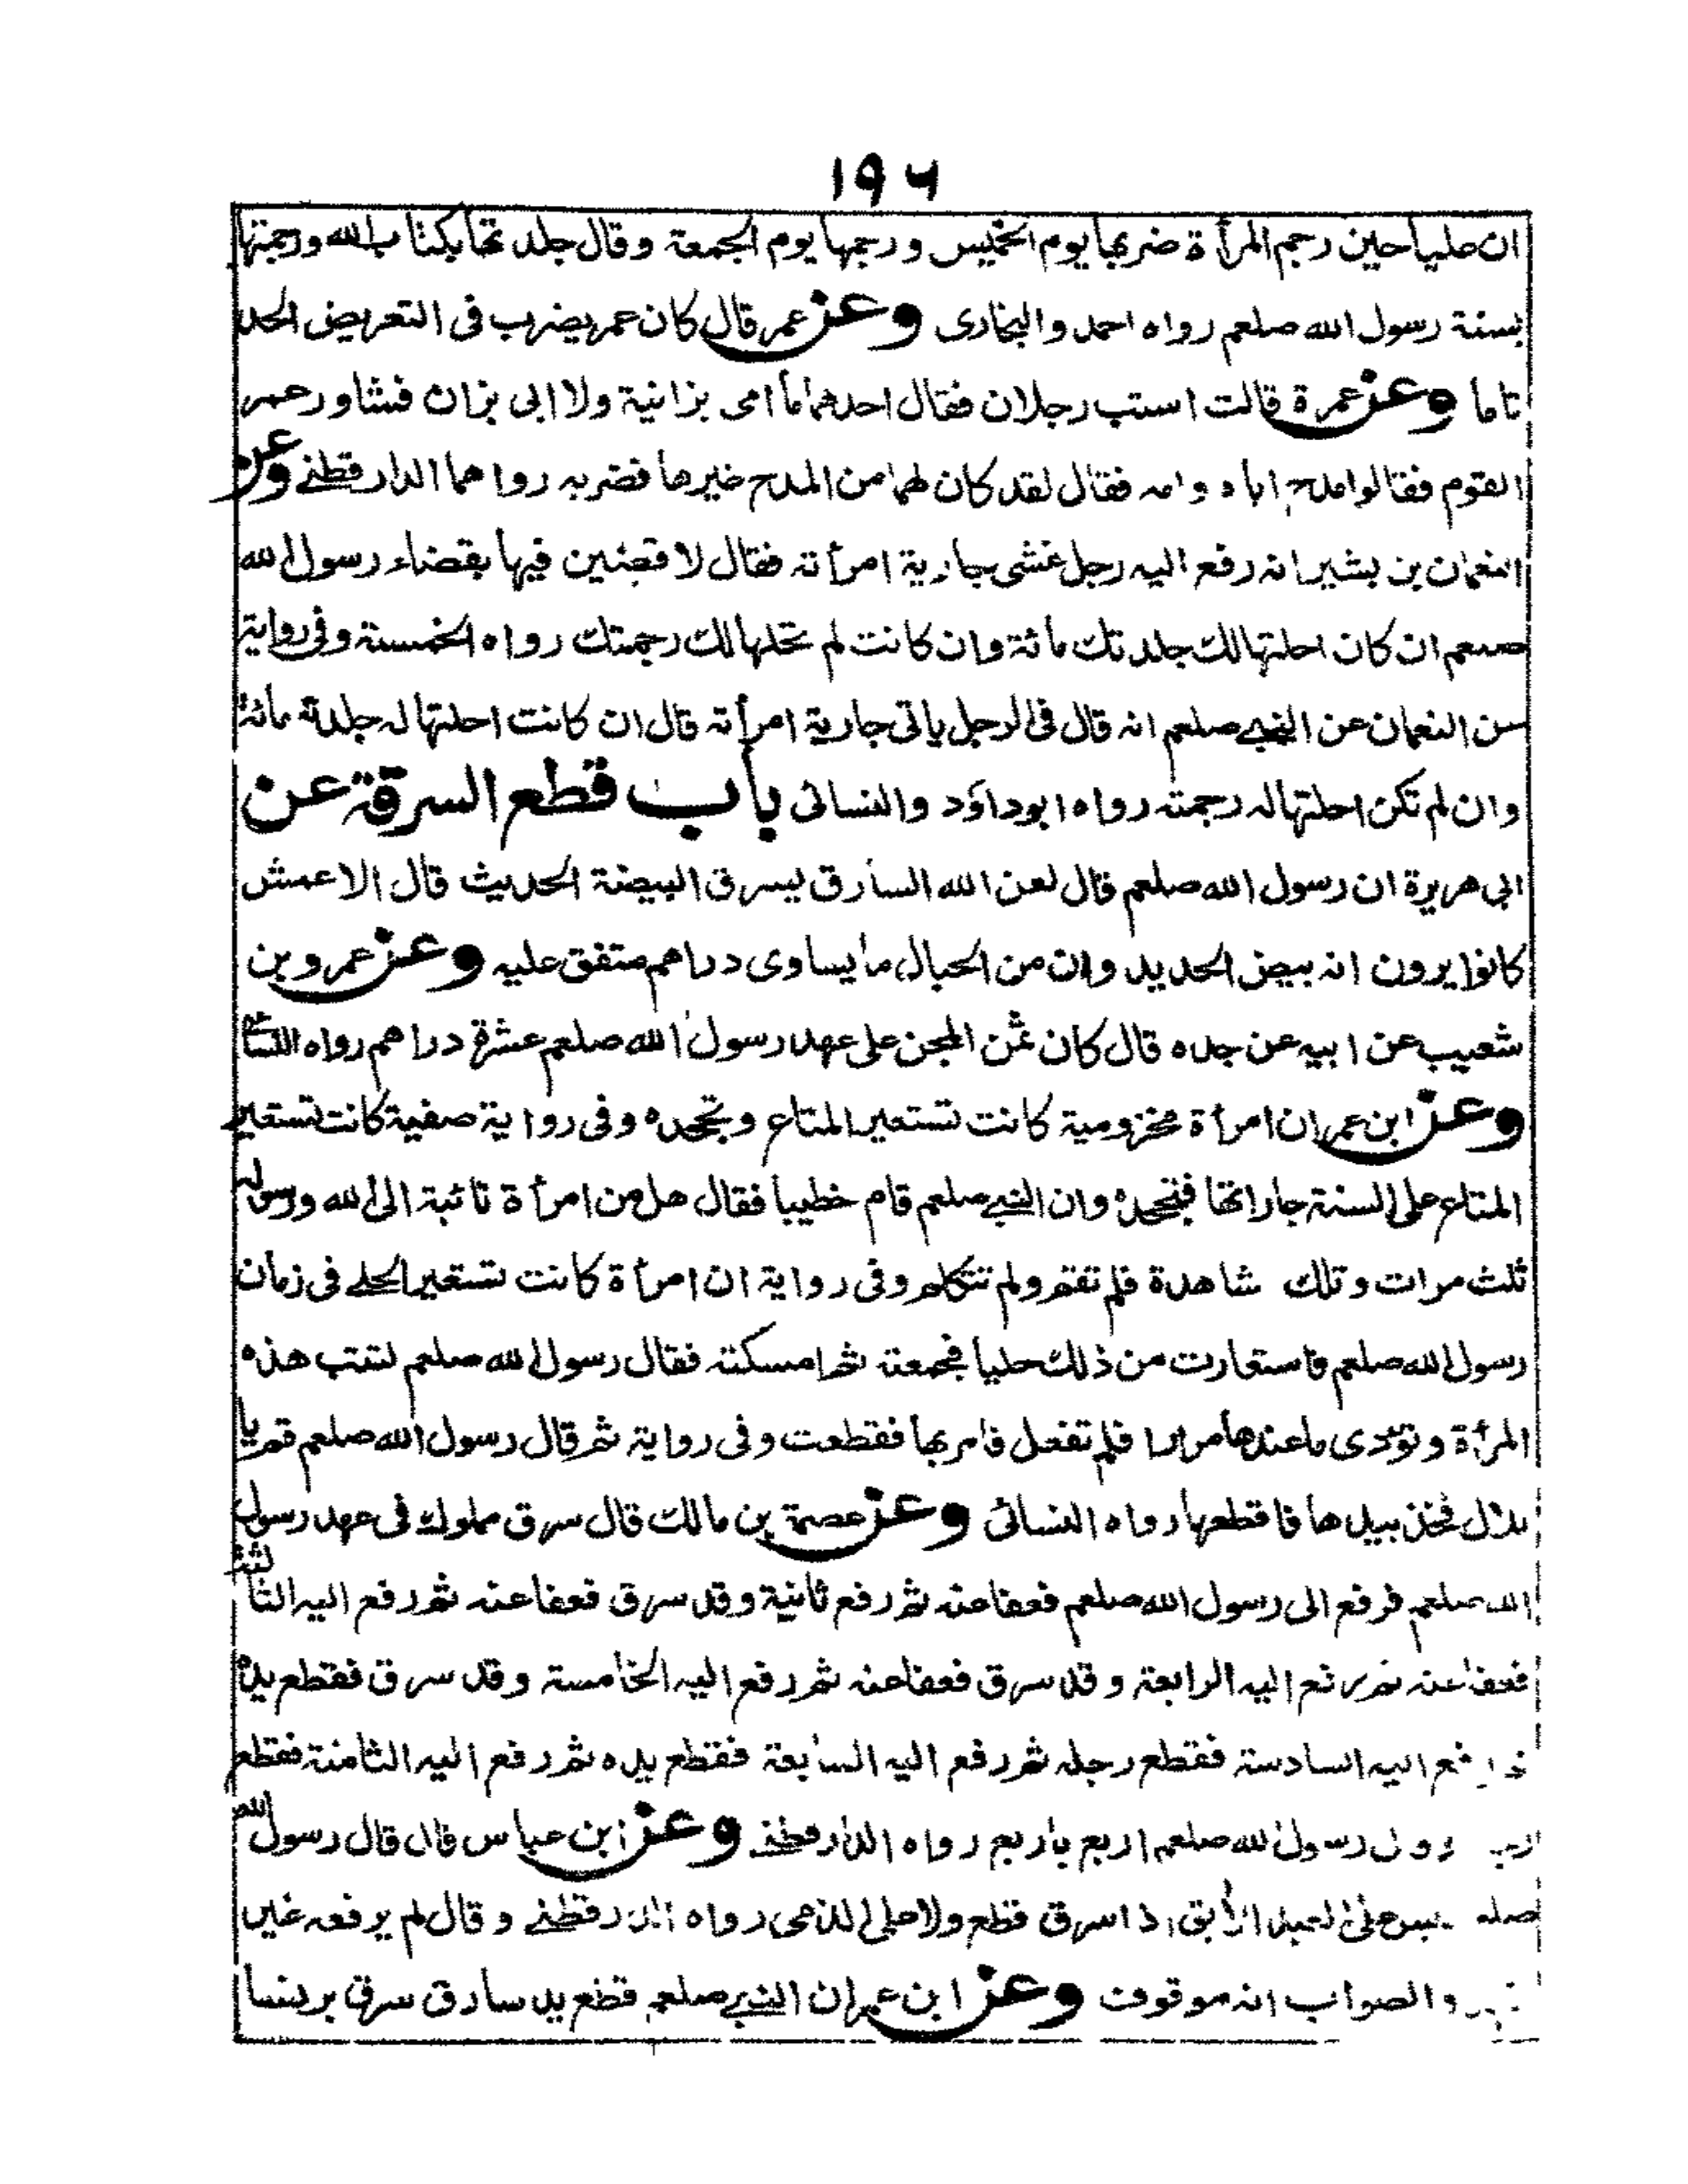 ١٩٦
ان عليا حين رجم المرأة ضربها يوم الخميس و رجمها يوم الجمعة وقال جلدتها بكتاب الله ورجمتها
بسنة رسول الله صلعم رواه احمد والبخارى وعن عمر قال كان عمر يضرب فى التعريض الحد
تاما وعن عمرة قالت استب رجلان فقال احدهما ما امى بزانية ولا ابى بزان فشاور عمر
القوم فقالوا مدح اباه وامه فقال لقد كان لهما من المدح غيرها فضربه رواهما الدارقطنے وعن
النعمان بن بشير انه رفع اليه رجل غشى جارية امرأته فقال لاقضين فيها بقضاء رسول الله
صلعم ان كان احلتها لك جلدتك مائة وان كانت لم تحلها لك رجمتك رواه الخمسة وفى رواية
عن النعمان عن النبے صلعم انه قال فى الرجل ياتى جارية امرأته قال ان كانت احلتها له جلدته مائة
وان لم تكن احلتها له رجمته رواه ابوداؤد والنسائى باب قطع السرقة عن
ابى هريرة ان رسول الله صلعم قال لعن الله السارق يسرق البيضة الحديث قال الاعمش
كانوا يرون انه بيض الحديد وان من الحبال ما يساوى دراهم متفق عليه وعن عمرو بن
شعيب عن ابيه عن جده قال كان ثمن المجن على عهد رسول الله صلعم عشرة دراهم رواه النسائى
وعن ابن عمر ان امرأة مخزومية كانت تستعير المتاع وتجحده وفى رواية صفية كانت تستعير
المتاع على السنة جاراتها فتجحده وان النبے صلعم قام خطيبا فقال هل من امرأة تائبة الى الله ورسوله
ثلث مرات وتلك شاهدة فلم تقم ولم تتكلم وفى رواية ان امرأة كانت تستعير الحلے فى زمان
رسول الله صلعم فاستعارت من ذلك حليا فجمعته ثم امسكته فقال رسول الله صلعم لتتب هذه
المرأة وتؤدى ما عندها مرارا فلم تفعل فامر بها فقطعت وفى رواية ثم قال رسول الله صلعم قم يا
بلال فخذ بيدها فاقطعها رواه النسائى وعن عصمة بن مالك قال سرق مملوك فى عهد رسول
الله صلعم فرفع الى رسول الله صلعم فعفا عنه ثم رفع ثانية وقد سرق فعفا عنه ثم رفع اليه الثالثة
فعفا عنه ثم رفع اليه الرابعة و قد سرق فعفا عنه ثم رفع اليه الخامسة وقد سرق فقطع يده
ثم رفع اليه السادسة فقطع رجله ثم رفع اليه السابعة فقطع يده ثم رفع اليه الثامنة فقطع
رسول الله صلعم اربع باربع رواه الدارقطنے وعن ابن عباس قال قال رسول الله
صلعم ليس على العبد الآبق اذا سرق قطع ولا على الذمى رواه الدارقطنے وقال لم يرفعه غير
والصواب انه موقوف وعن ابن عمر ان النبے صلعم قطع يد سارق سرق برنسا